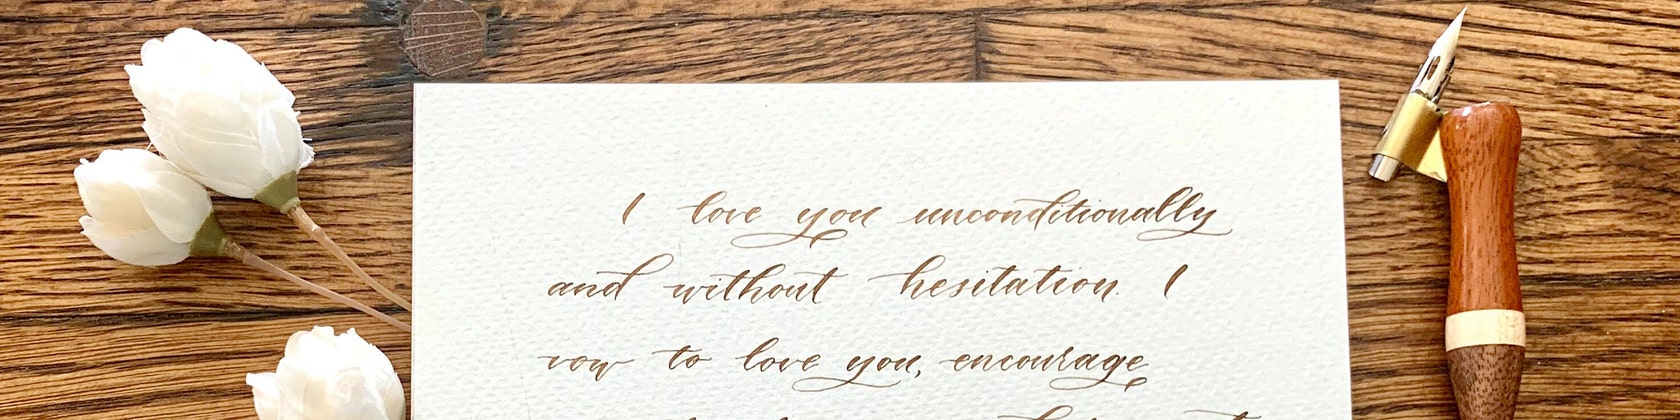 I love you unconditionally
and without hesitation. I
vow to love you, encourage